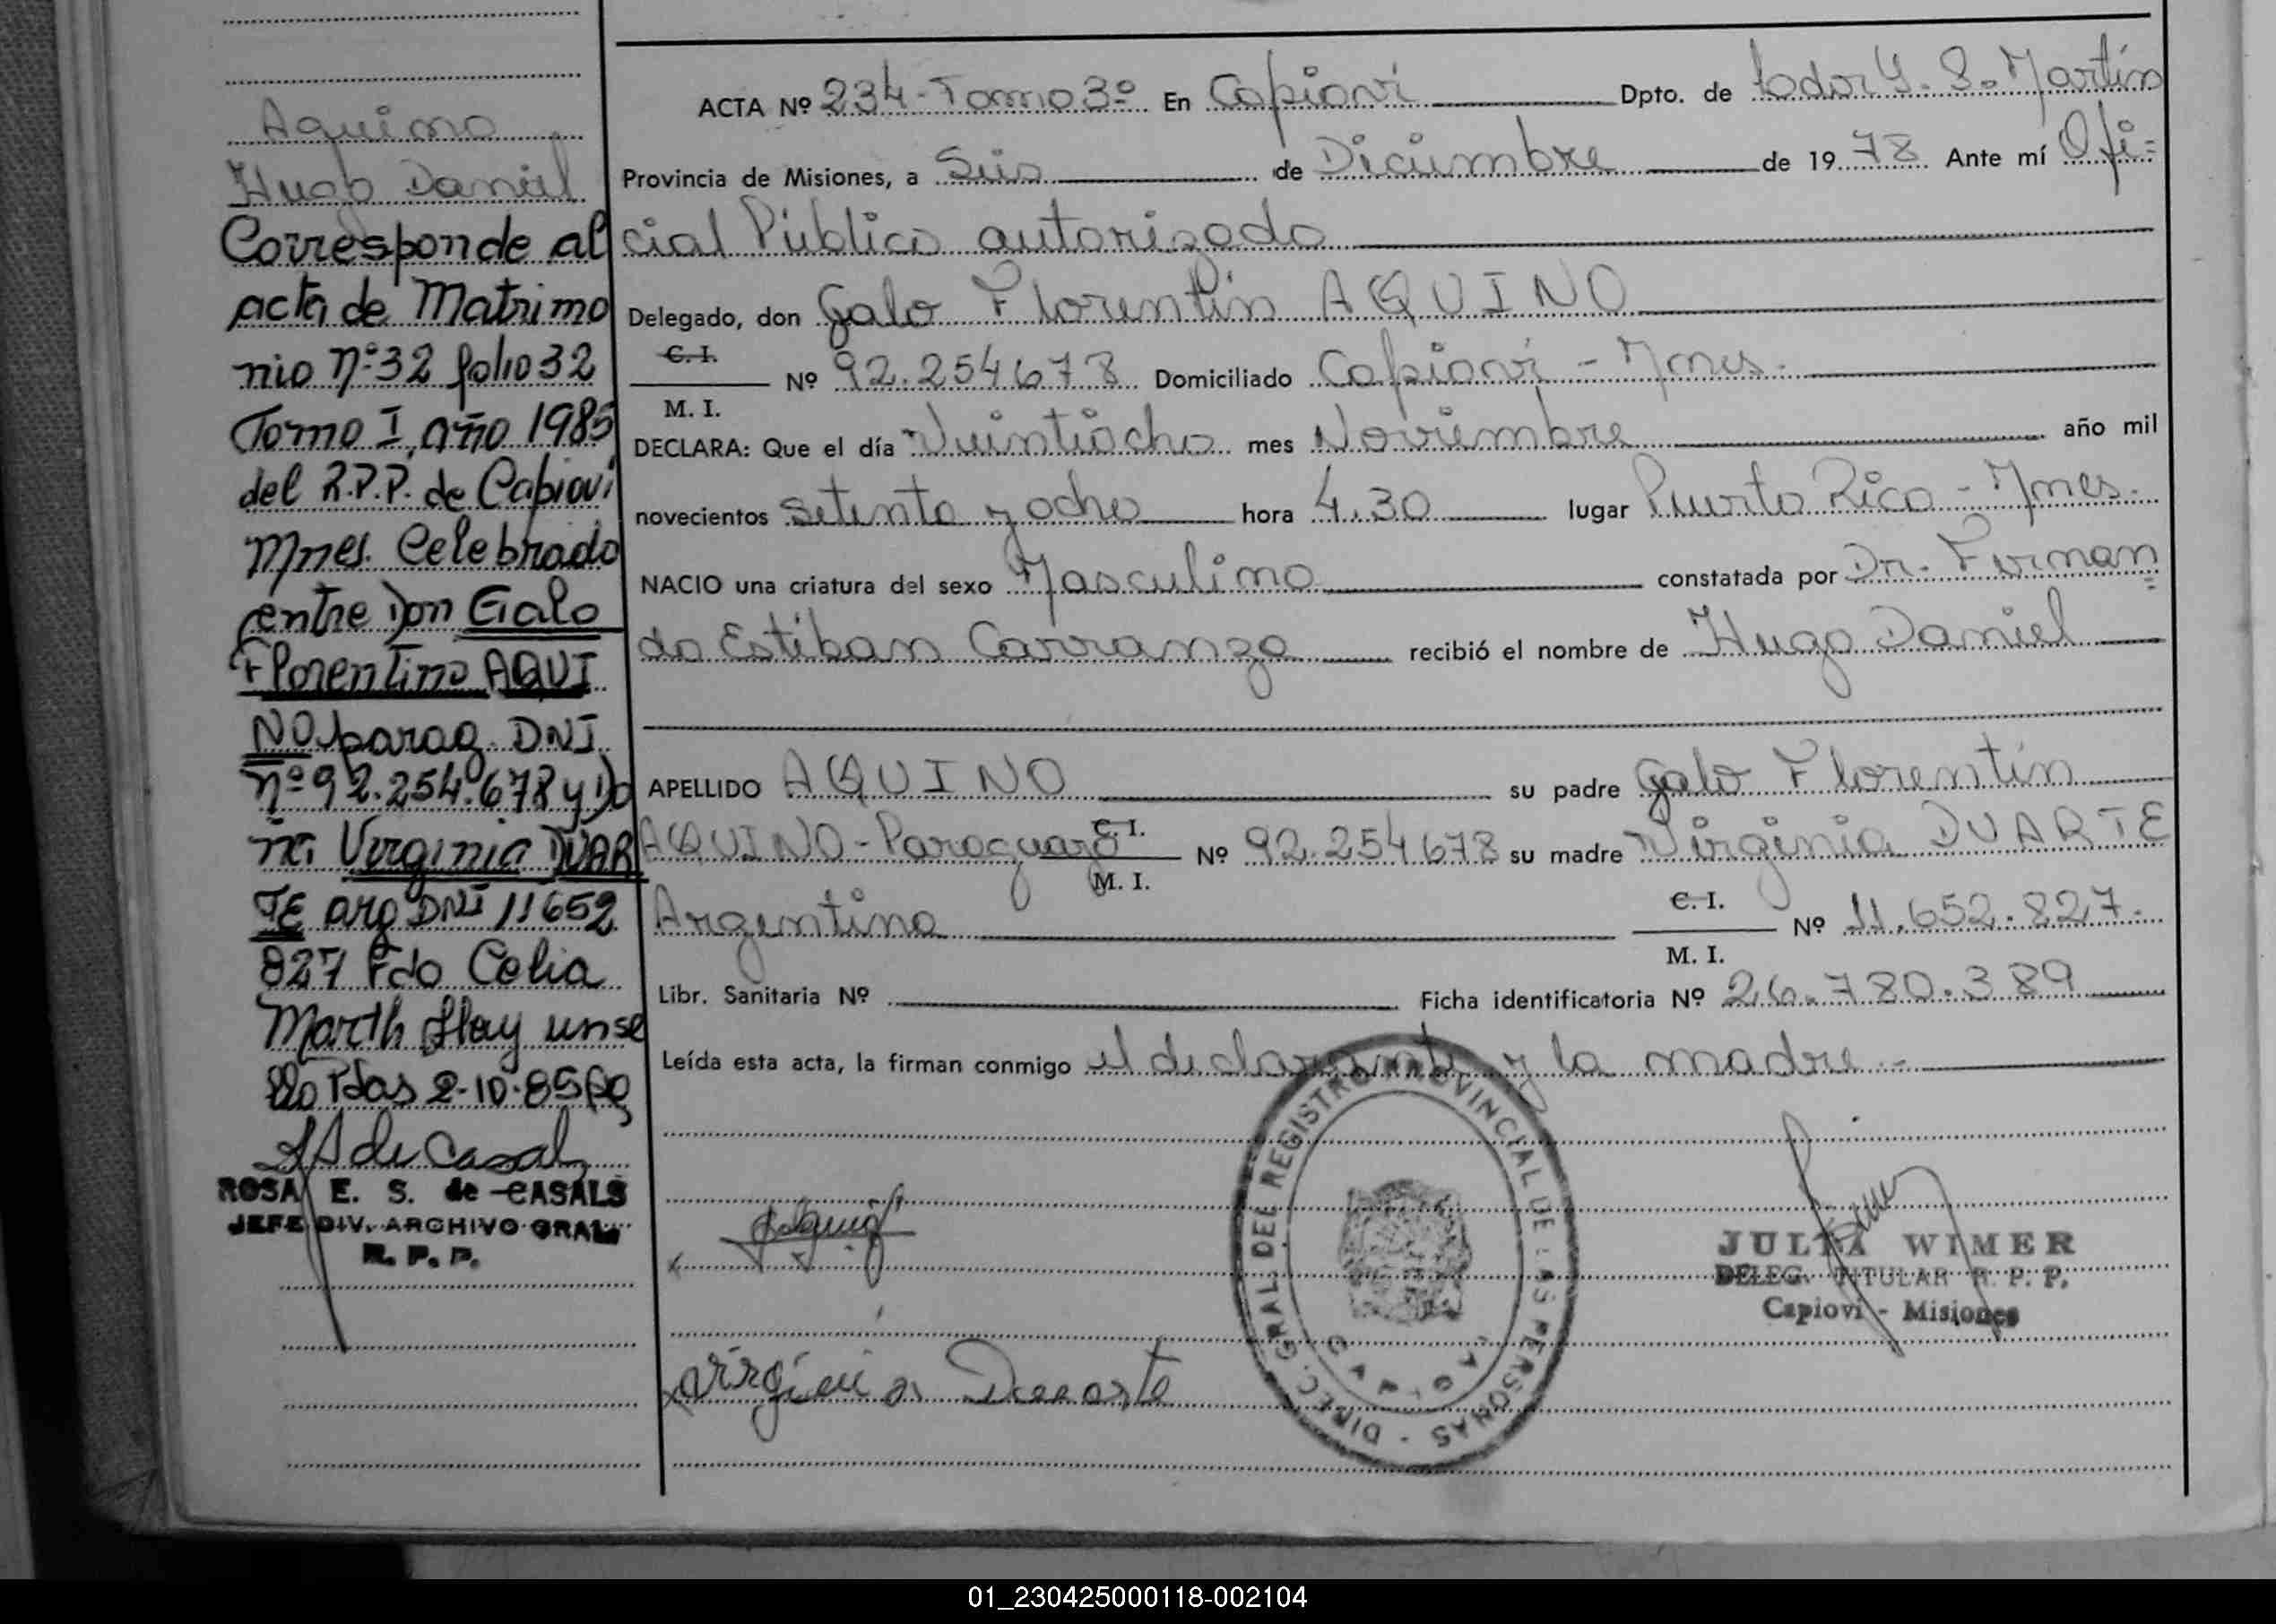 Aquino
Hugo Daniel
Corresponde al
acta de Matrimo
nio nº 32 folio 32
Tomo I, año 1985
del R.P.P. de Capiovi
Mnes. Celebrado
entre Don Galo
Florentino AQUI
NO parag. DNI
nº 92.254.678 y Do
ña Virginia DUAR
TE arg DNI 11652
827 Fdo Celia
Marth Hay un se
llo Pdas 2-10-85
ROSA E. S. de CASALS
JEFE DIV. ARCHIVO GRAL
R. P. P.
ACTA Nº 234-Tomo 3º En Capioví Dpto. de Lodor G. S. Martín
Provincia de Misiones, a Seis de Diciembre de 1978 Ante mí Ofi=
cial Público autorizado
Delegado, don Galo Florentín AQUINO
C. I.
M. I. Nº 92.254.678 Domiciliado Capioví - Mnes.
DECLARA: Que el día Veintiocho mes Noviembre año mil
novecientos setenta y ocho hora 4.30 lugar Puerto Rico - Mnes.
NACIO una criatura del sexo Masculino constatada por Dr. Fernan=
do Esteban Carranza recibió el nombre de Hugo Daniel
APELLIDO AQUINO su padre Galo Florentín
AQUINO - Paraguayo C. I. M. I. Nº 92.254678 su madre Virginia DUARTE
Argentina C. I. M. I. Nº 11.652.827.
Libr. Sanitaria Nº Ficha identificatoria Nº 26.780.389
Leída esta acta, la firman conmigo el declarante y la madre.-
DIREC. GRAL. DEL REGISTRO PROVINCIAL DE LAS PERSONAS
JULIA WIMER
DELEG. TITULAR R. P. P.
Capiovi - Misiones
x Virginia Duarte
01_230425000118-002104